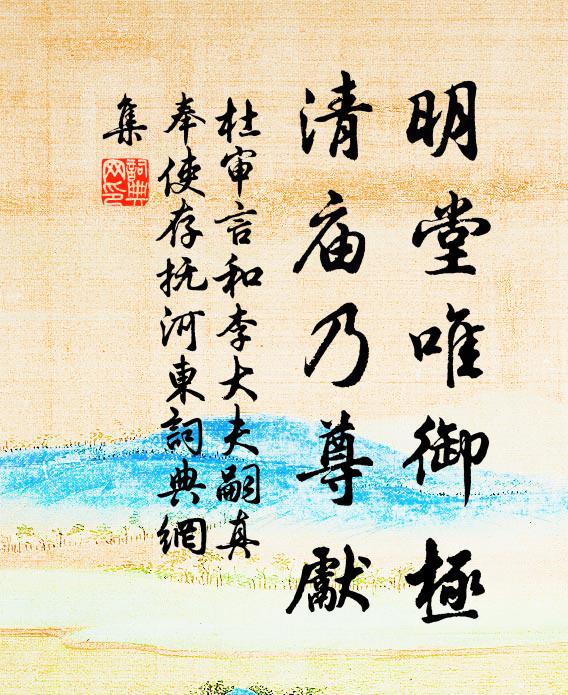 明堂唯御極
清庙乃尊獻
杜审言和李大夫嗣真
奉使存抚河東詞典網
集
詞典网印